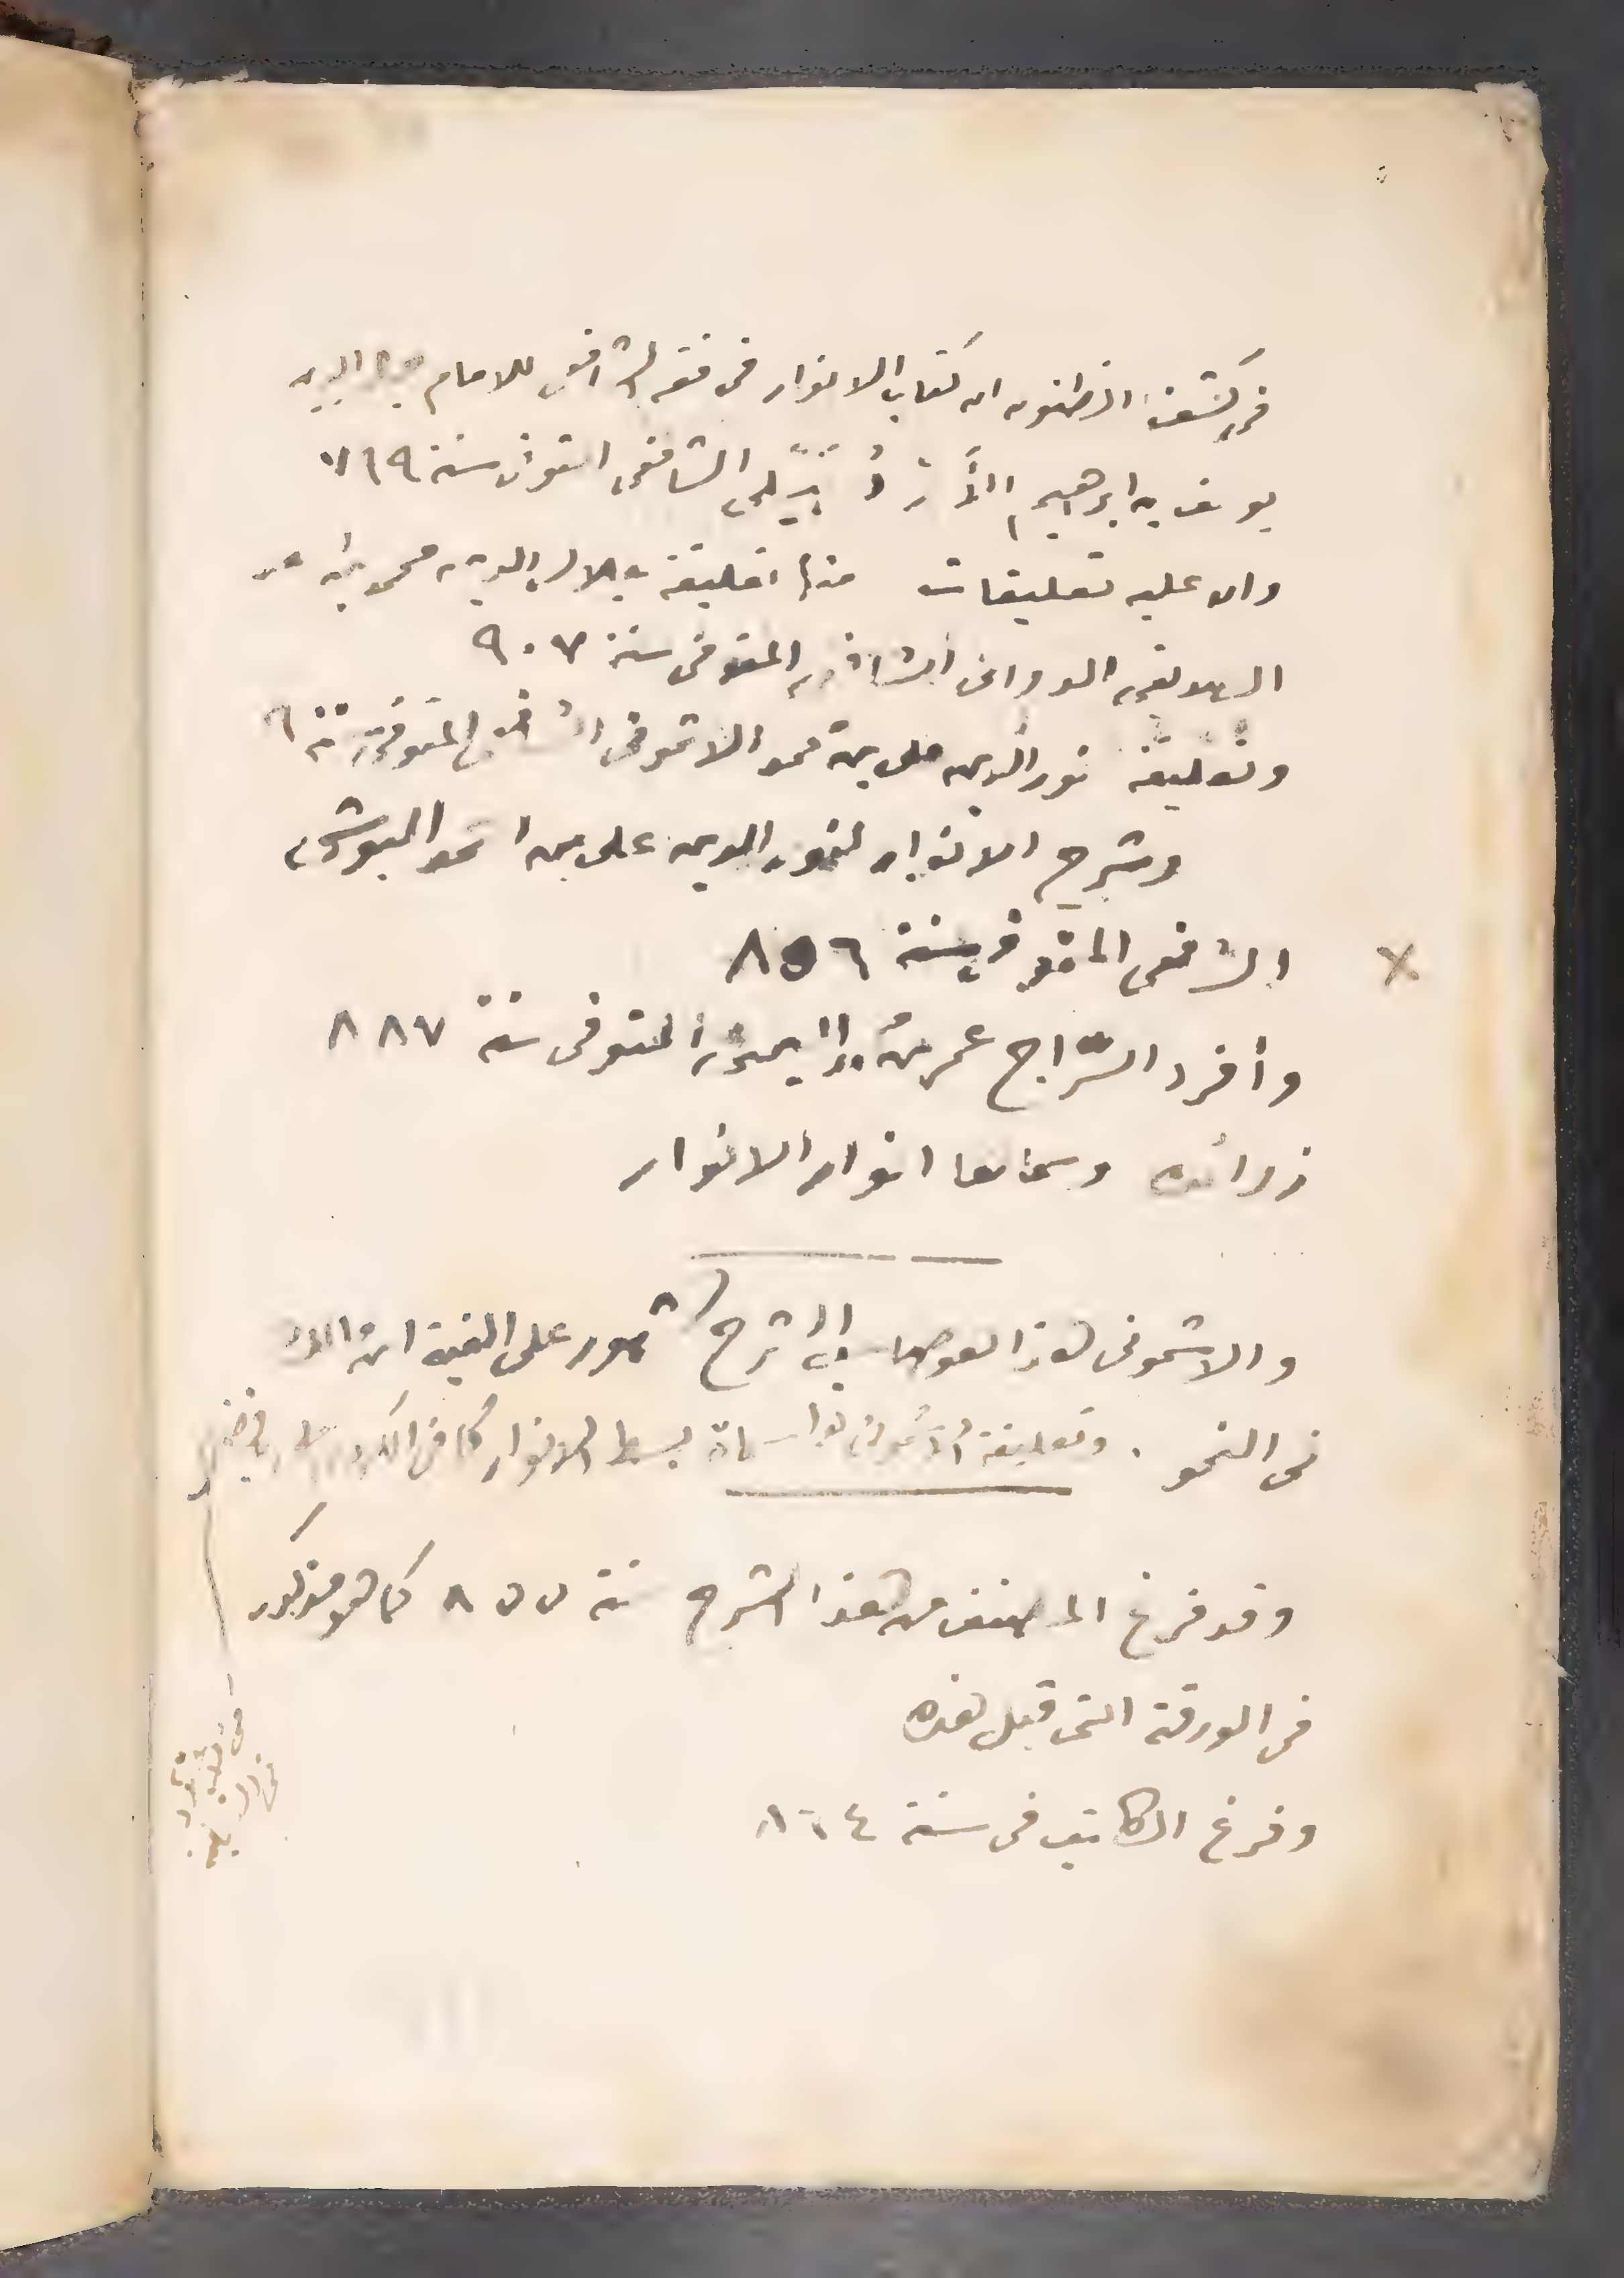 في كشف الظنون ان كتاب الانوار في فقه الشافعي للامام جمال الدين
يوسف بن ابراهيم الأَرْدُبيلى الشافعى المتوفى سنة ٧٩٩
وان عليه تعليقات منها تعليقة جلال الدين محمد بن
الصديقى الدوانى الشافعى المتوفى سنة ٩٠٧
وتعليقة نور الدين على بن محمد الاشمونى الشافعى المتوفى سنة
وشرح الانوار لنور الدين على بن احمد البوشى
الشافعى المتوفى سنة ٨٥٦
×
وأفرد السّراج عمر بن المتوفى سنة ٨٨٧
زوائده وسماها انوار الانوار
والاشمونى هذا هو صاحب الشرح المشهور على الفية ابن مالك
فى النحو . وتعليقة الأشمونى هذا بسط الانوار كما فى
وقد فرغ المصنف من هذا الشرح سنة ٨٥٥ كما هو مذكور
فى الورقة التى قبل هذه
وفرغ الكاتب فى سنة ٨٦٤